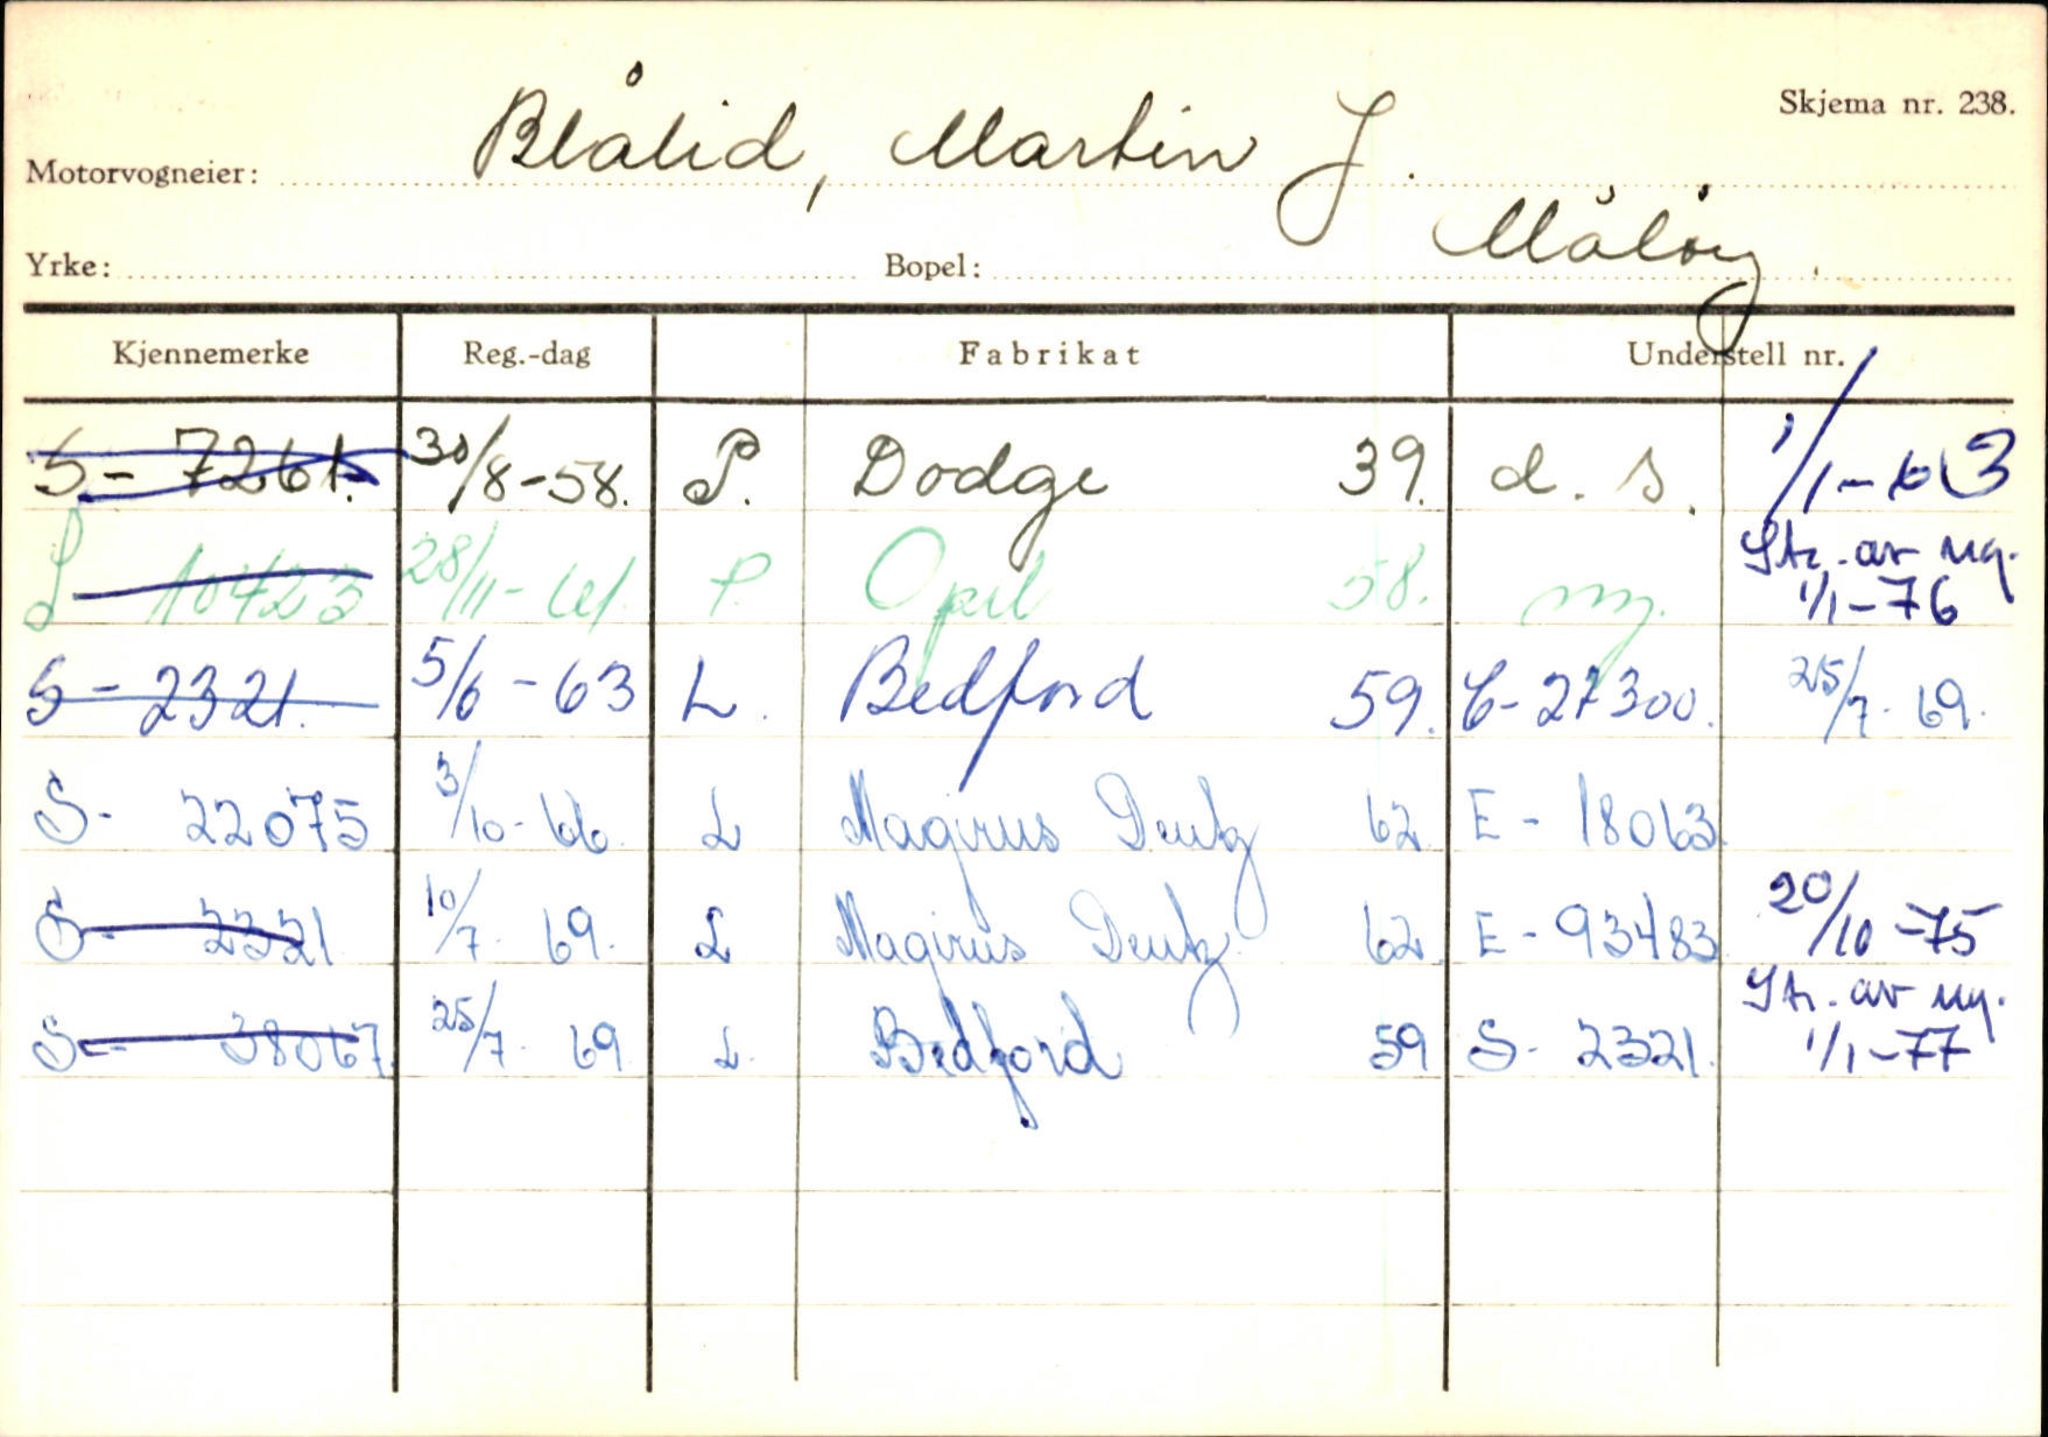 Skjema nr. 238.
Motorvogneier: Blålid, Martin J.
Yrke: Bopel: Måløy
Kjennemerke Reg.-dag Fabrikat Understell nr.
S - 7261. 30/8-58. P. Dodge 39. d. s. 1/1-63
S 10423 28/11-61. P. Opel 58. ny. Str. av ng. 1/1-76
S - 2321. 5/6 - 63 L. Bedford 59. C- 27300. 25/7- 69.
S- 22075 3/10- 66. L Magirus Deutz 62 E - 18063
S- 2321 10/7- 69. L Magirus Deutz 62 E - 93483 20/10 -75
S- 38067 25/7- 69 L. Bedford 59 S- 2321. Str. av ng. 1/1-77